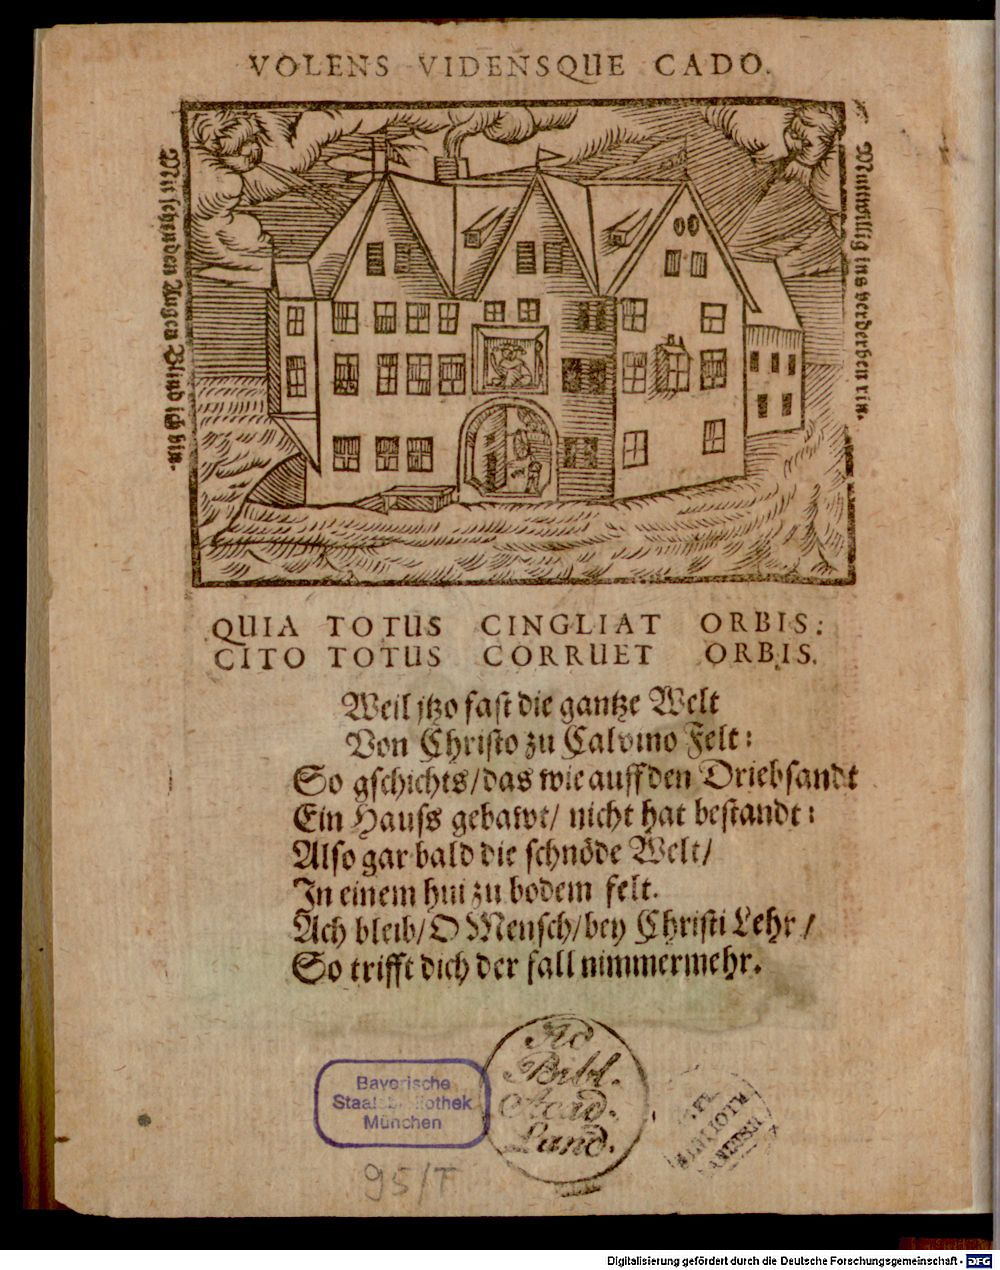 VOLENS VIDENSQUE CADO.
Mit sehenden Augen Blind ich bin.
Muttwillig ins verderben rin.
QUIA TOTUS CINGLIAT ORBIS:
CITO TOTUS CORRUET ORBIS.
Weil jtzo fast die gantze Welt
Von Christo zu Calvino Felt:
So gschichts/das wie auff den Driebsandt
Ein Hauss gebawt/ nicht hat bestandt:
Also gar bald die schnöde Welt/
In einem hui zu bodem felt.
Ach bleib/O Mensch/bey Christi Lehr/
So trifft dich der fall nimmermehr.
Ad
Bibl.
Acad.
Land.
Bayerische
Staatsbibliothek
München
BIBLIOTH
95/T
Digitalisierung gefördert durch die Deutsche Forschungsgemeinschaft - DFG